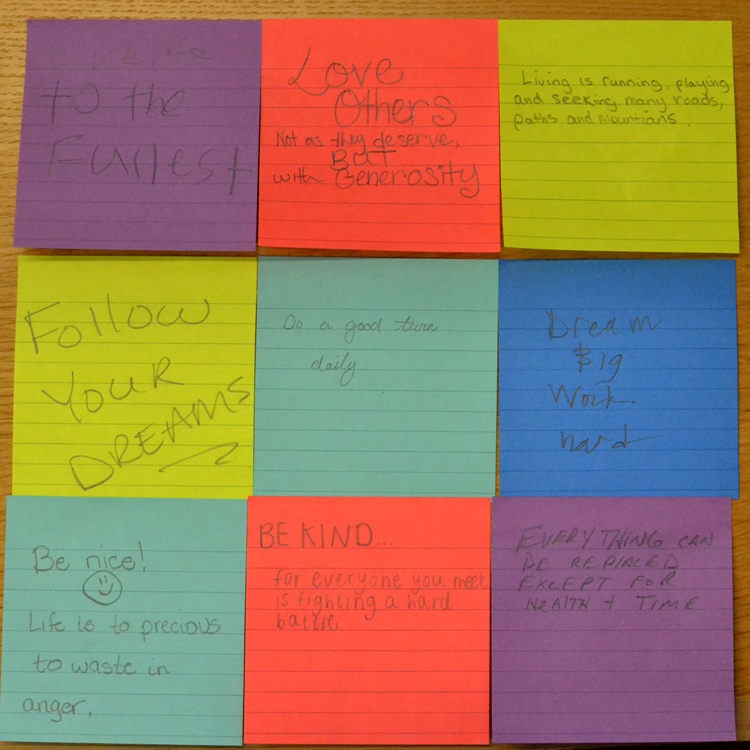 Live life
to the
Fullest
Love
Others
Not as they deserve,
BUT
with Generosity
Living is running, playing
and seeking many roads,
paths and mountians.
Follow
YOUR
DREAMS
Do a good turn
daily.
Dream
Big
Work
hard
Be nice!
Life is to precious
to waste in
anger.
BE KIND...
for everyone you meet
is fighting a hard
battle
EVERYTHING CAN
BE REPLACED
EXCEPT FOR
HEALTH + TIME